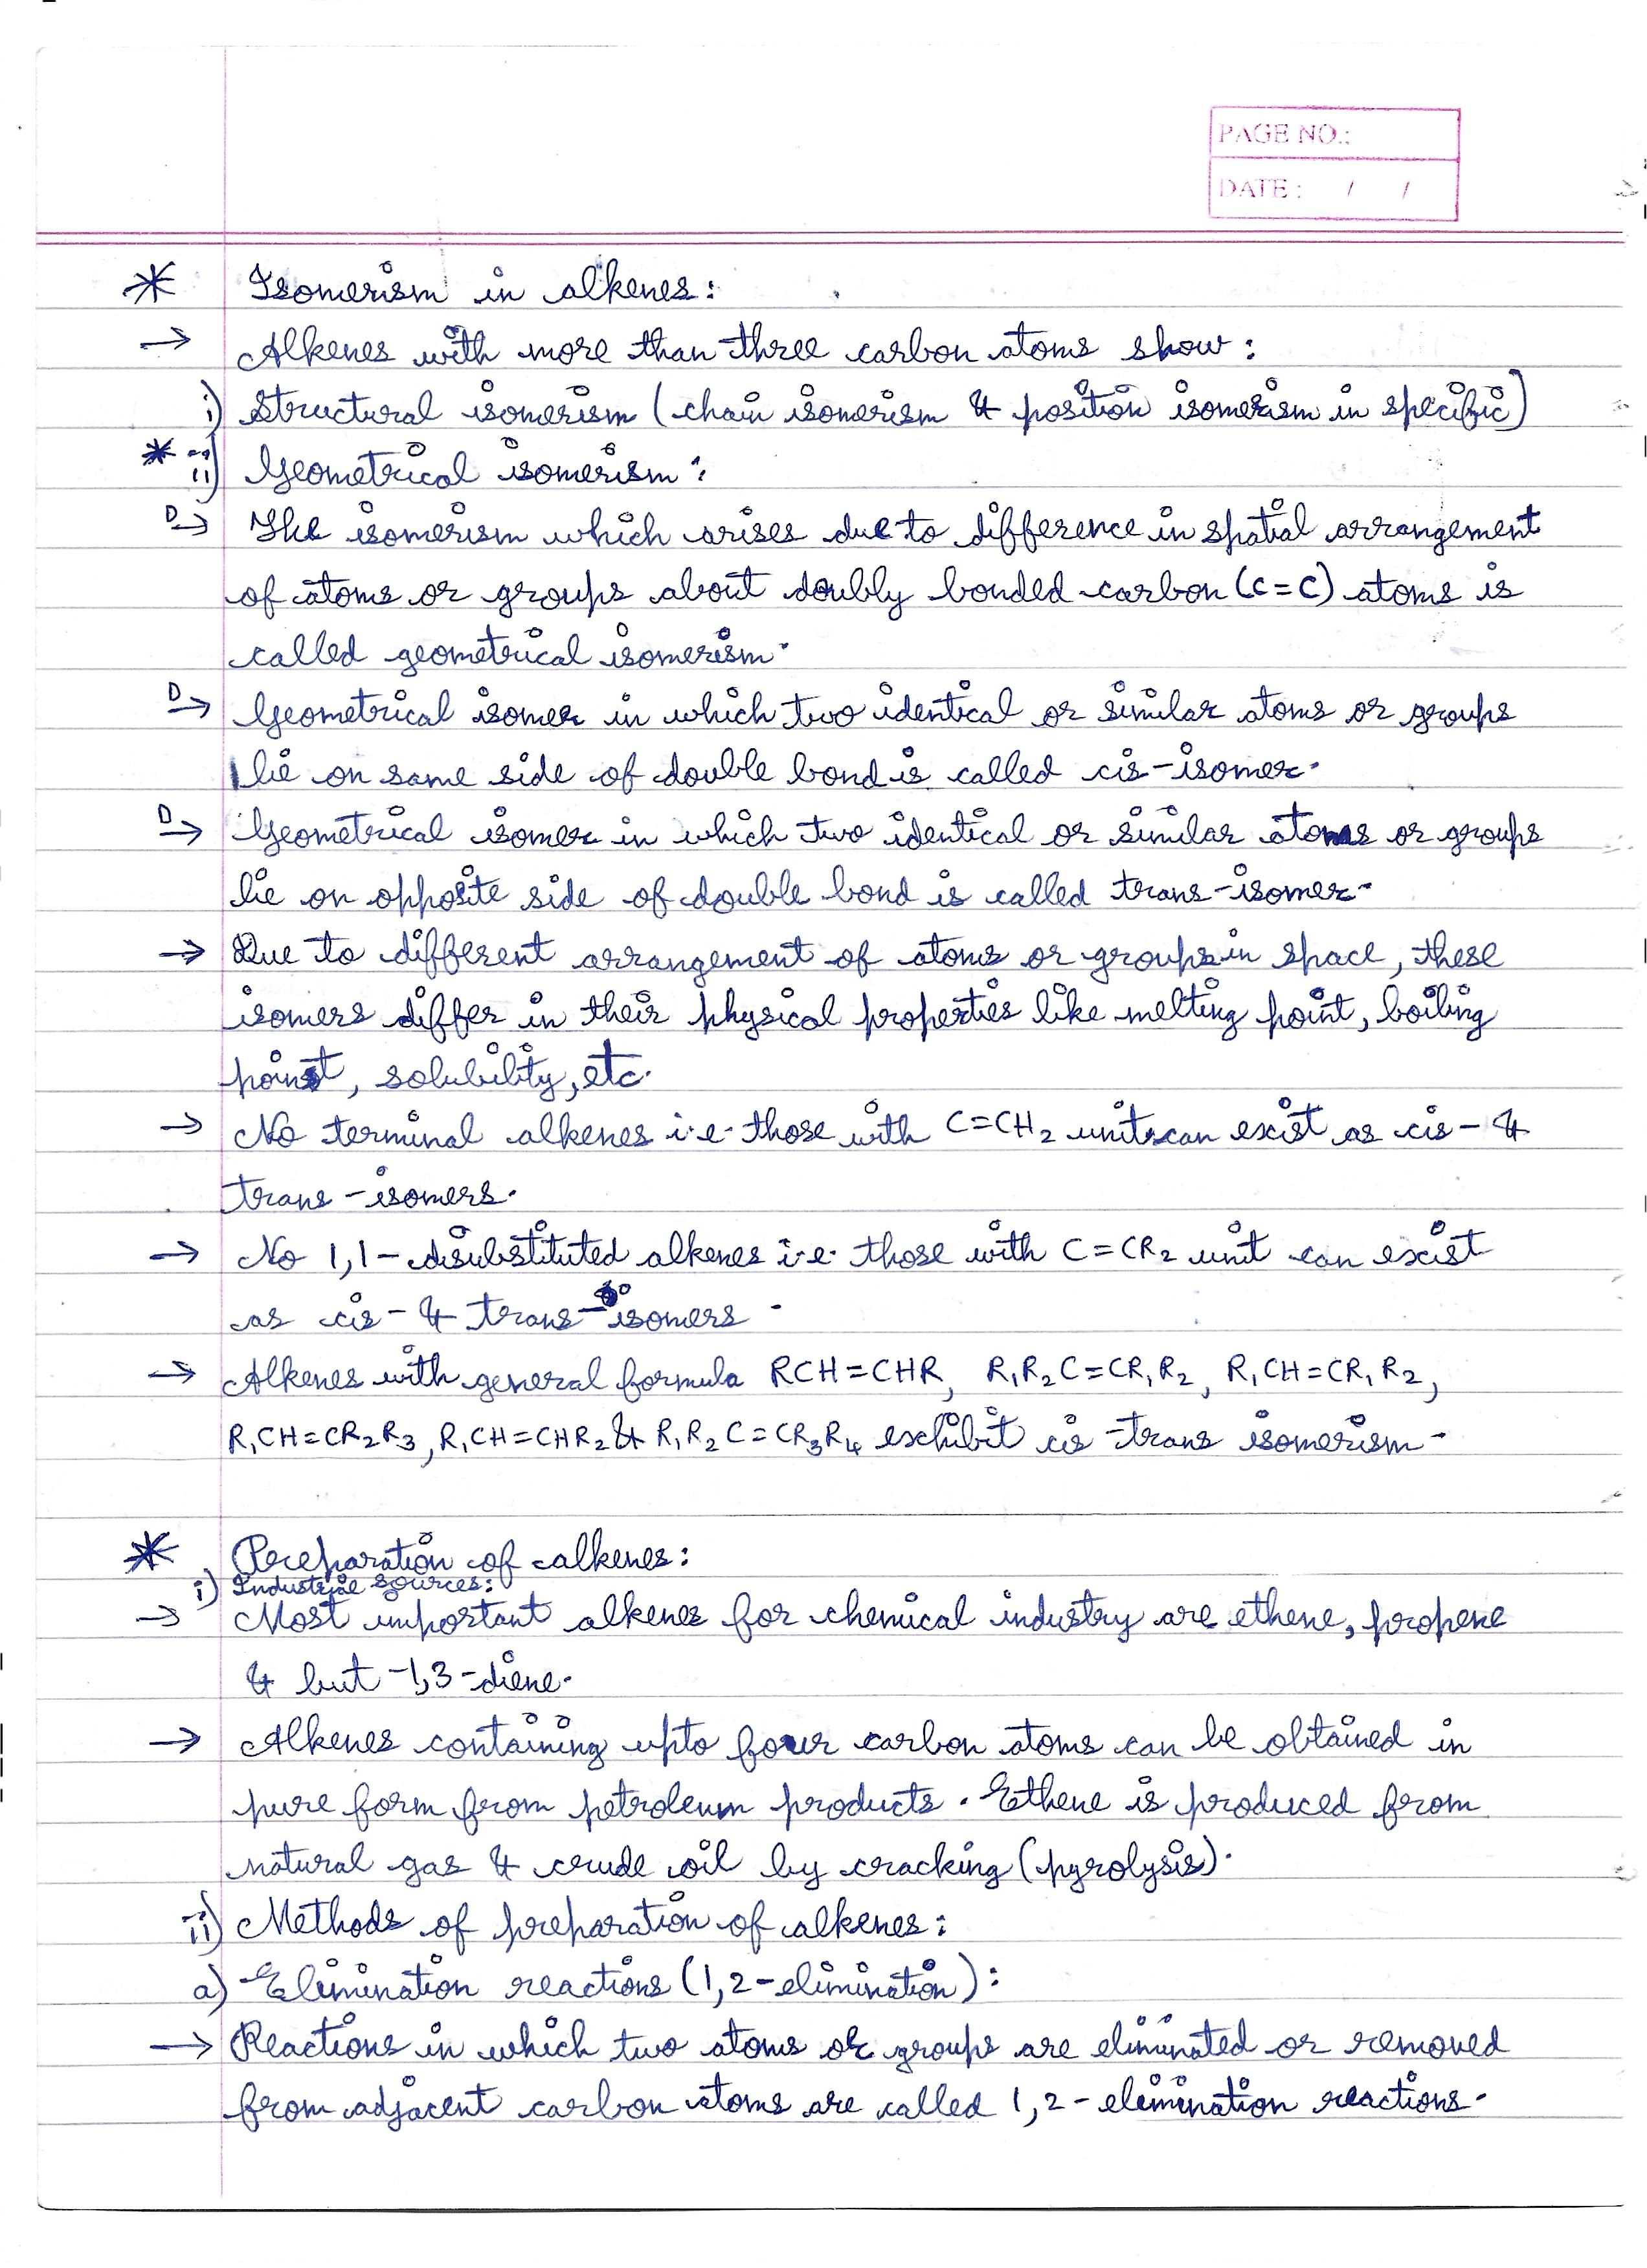 PAGE NO.:
DATE : / /
* Isomerism in alkenes:
→ Alkenes with more than three carbon atoms show:
i) Structural isomerism (chain isomerism & position isomerism in specific)
* ii) Geometrical isomerism:
D→ The isomerism which arises due to difference in spatial arrangement
of atoms or groups about doubly bonded carbon (C=C) atoms is
called geometrical isomerism.
D→ Geometrical isomer in which two identical or similar atoms or groups
lie on same side of double bond is called cis-isomer.
D→ Geometrical isomer in which two identical or similar atoms or groups
lie on opposite side of double bond is called trans-isomer.
→ Due to different arrangement of atoms or groups in space, these
isomers differ in their physical properties like melting point, boiling
point, solubility, etc.
→ No terminal alkenes i.e. those with C=CH₂ unit can exist as cis- &
trans-isomers.
→ No 1,1-disubstituted alkenes i.e. those with C=CR₂ unit can exist
as cis- & trans-isomers.
→ Alkenes with general formula RCH=CHR, R₁R₂C=CR₁R₂, R₁CH=CR₁R₂,
R₁CH=CR₂R₃, R₁CH=CHR₂ & R₁R₂C=CR₃R₄ exhibit cis-trans isomerism.
* Preparation of alkenes:
i) Industrial sources:
→ Most important alkenes for chemical industry are ethene, propene
& but-1,3-diene.
→ Alkenes containing upto four carbon atoms can be obtained in
pure form from petroleum products. Ethene is produced from
natural gas & crude oil by cracking (pyrolysis).
ii) Methods of preparation of alkenes:
a) Elimination reactions (1,2-elimination):
→ Reactions in which two atoms or groups are eliminated or removed
from adjacent carbon atoms are called 1,2-elimination reactions.